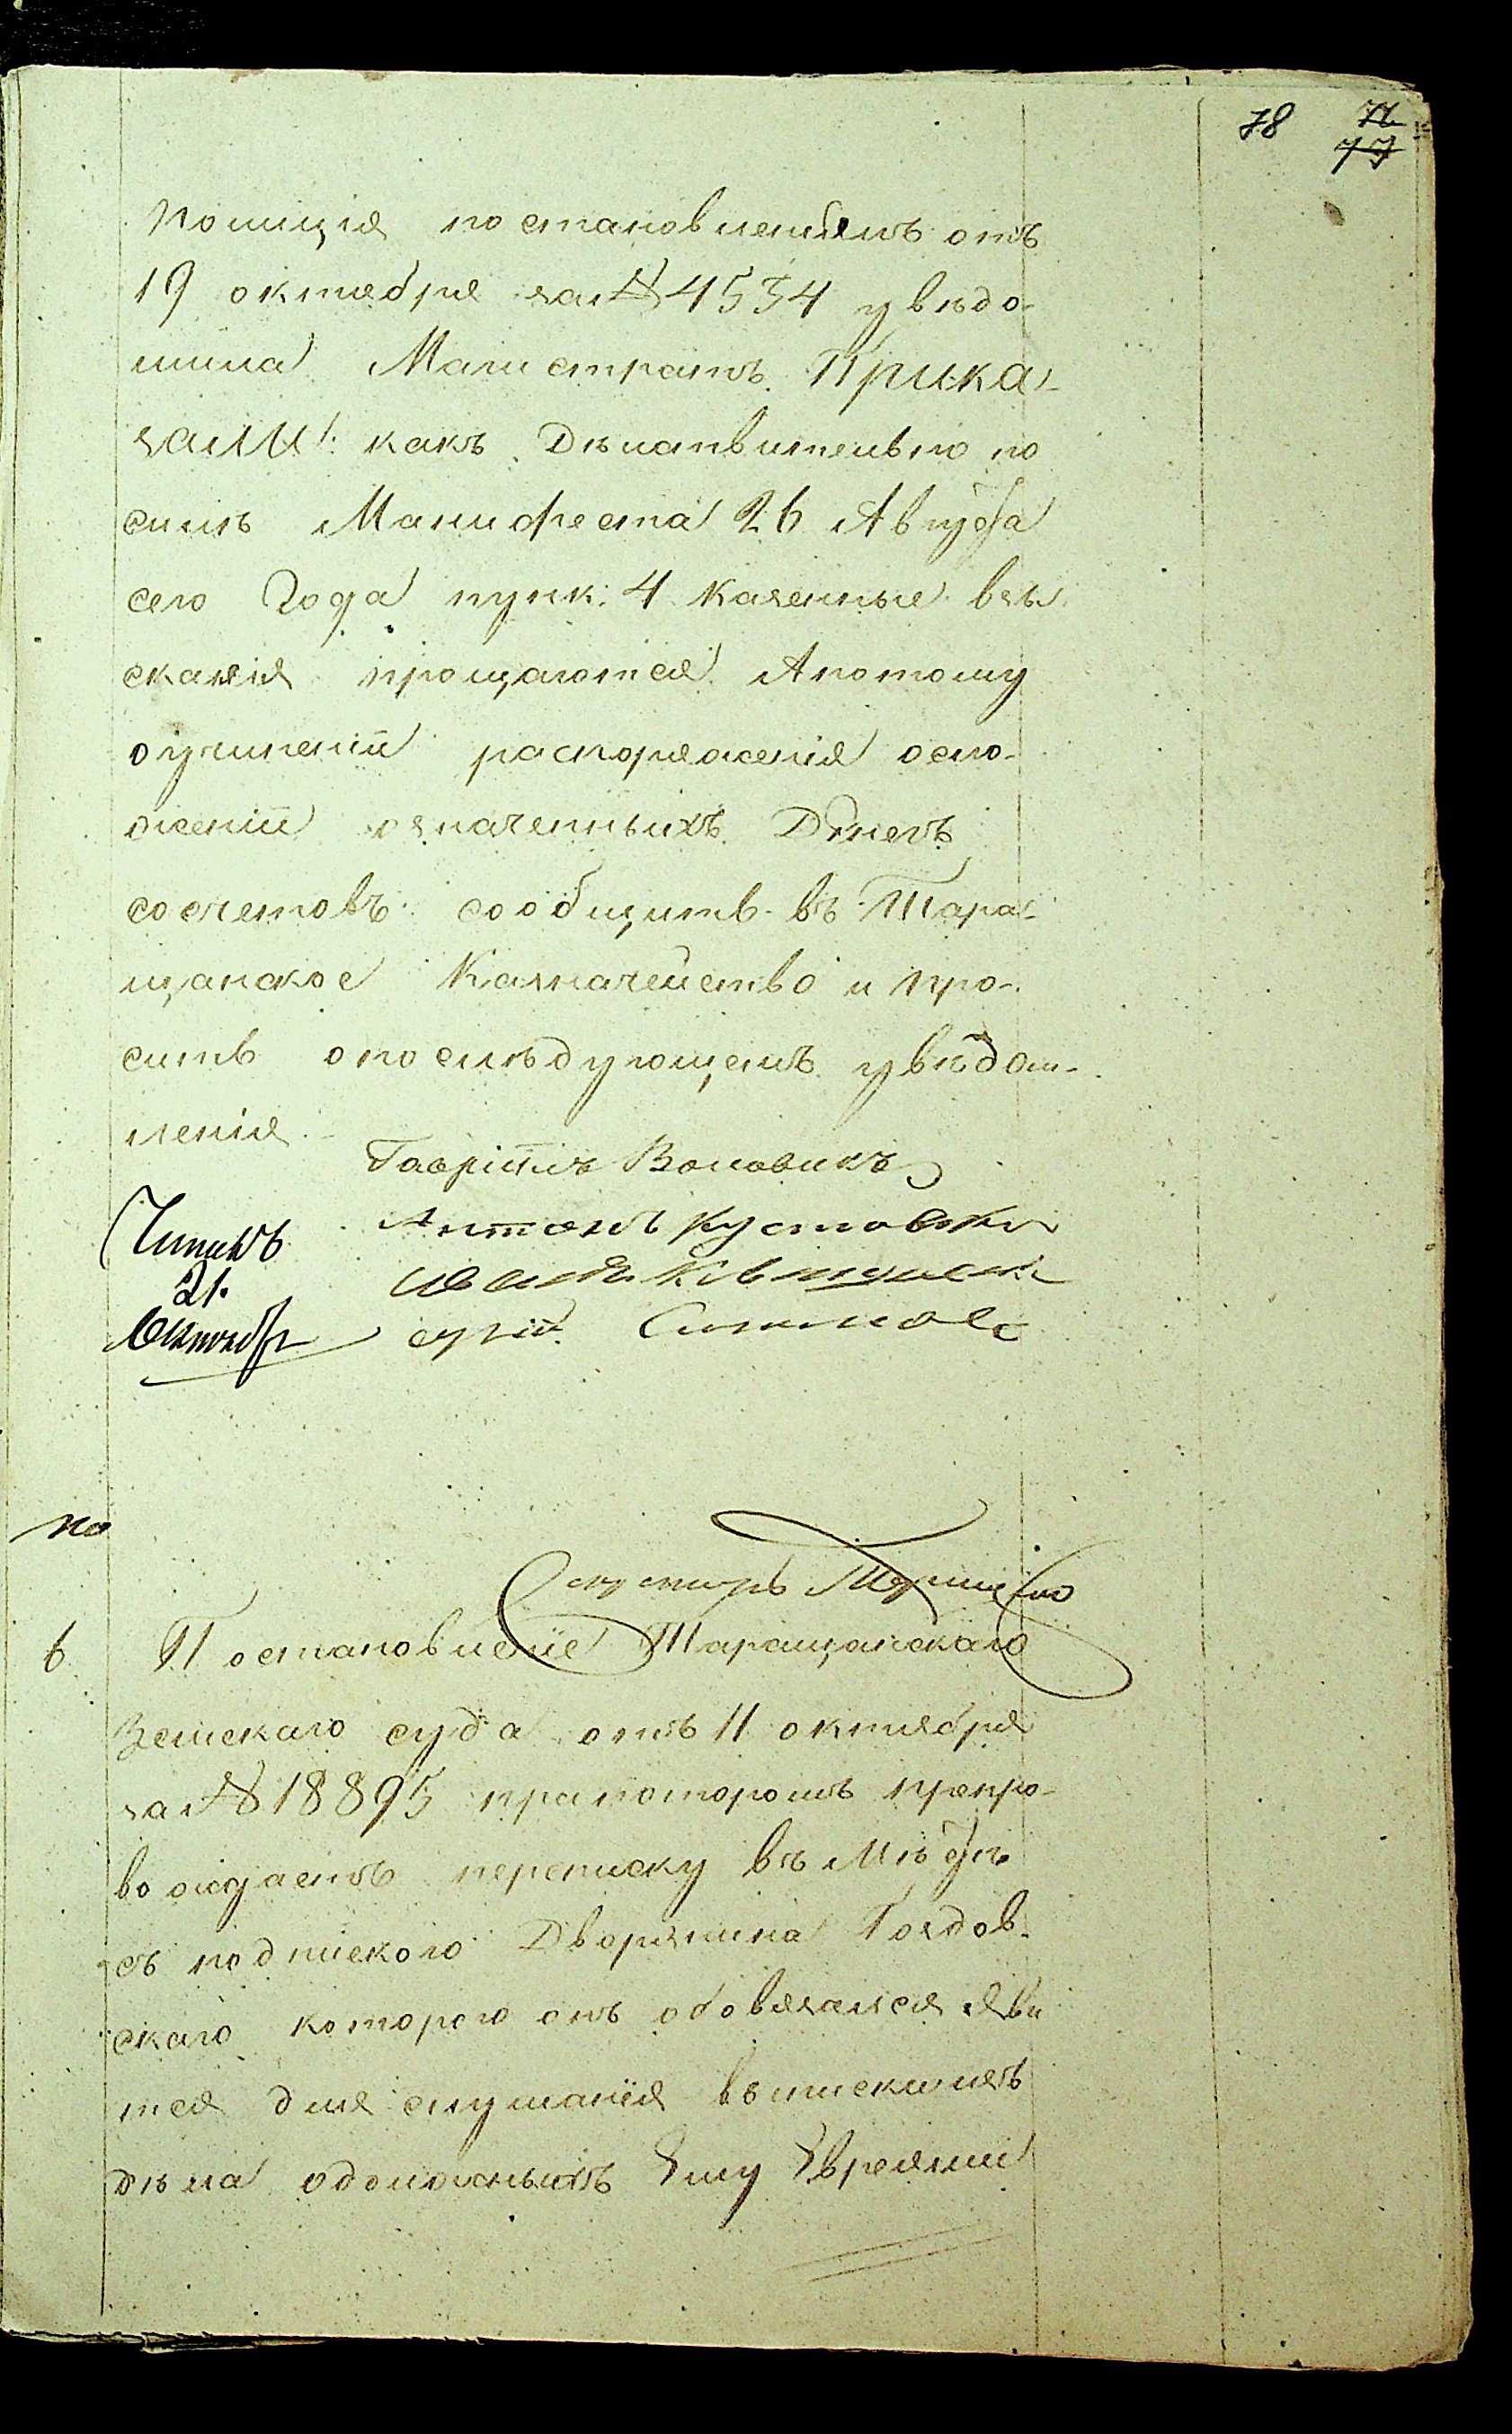 78 71
77
полиція постановленіемъ отъ
19 октября за № 4534 увѣдо-
мила Магистратъ. Прика-
зали: какъ Дѣйствительно по
силѣ Манифеста 26 Августа
сего Года пунк. 4 Казенные взы
сканія прощаются Апотому
оучиненіи распоряженія осло-
женіи означенныхъ Денегъ
сосчетовъ сообщить въ Тара-
щанское Казначейство и про-
сить опослѣдующемъ увѣдом-
ленія.
Гавріилъ Воловикъ
Антонъ Кустовски
Читалъ
21.
Октября
по
Секретарь
6 Постановленіе Таращанскаго
Земскаго суда отъ 11 октября
за № 18895 прикоторомъ препро-
вождаетъ переписку въ Мѣстѣ
съ подпискою Дворянина Гоздов-
скаго которою онъ обовязался Яви
тся для слушанія выписки изъ
дѣла одолжныхъ Ему Евреями